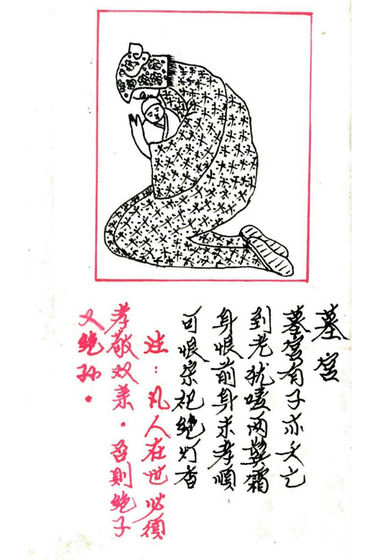 墓宫
墓宫有子亦夭亡
到老犹嗟两鬓霜
身恨前身未孝顺
可恨宗祀绝灯香
注：凡人在世必须
孝敬双亲。否则绝子
又绝孙。